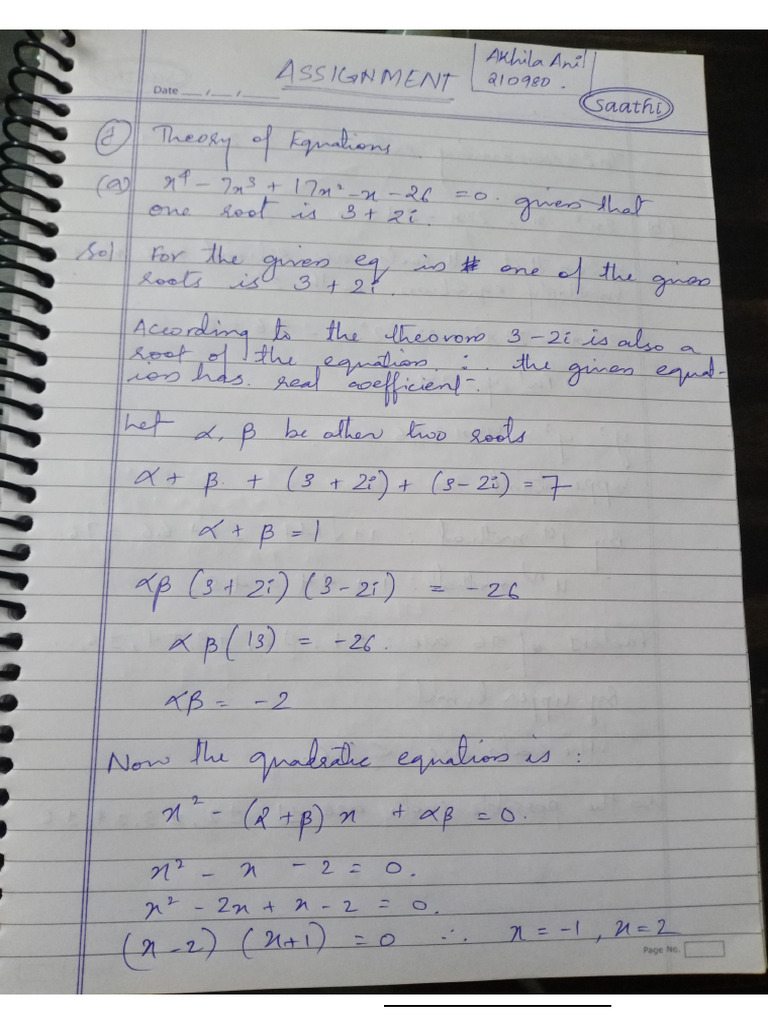 ASSIGNMENT
Akhila Anil
210980.
Date __,__,____
Saathi
Theory of Equations.
(a) x⁴ - 7x³ + 17x² - x - 26 = 0. given that
one root is 3 + 2i.
Sol For the given eq is one of the given
roots is 3 + 2i.
According to the theorom 3 - 2i is also a
root of the equation ∴ the given equat-
ion has real coefficient.
Let α, β be other two roots
α + β + (3 + 2i) + (3 - 2i) = 7
α + β = 1
αβ (3 + 2i) (3 - 2i) = -26
αβ (13) = -26.
αβ = -2
Now the quadratic equation is :
x² - (α + β) x + αβ = 0.
x² - x - 2 = 0.
x² - 2x + x - 2 = 0.
(x - 2) (x + 1) = 0 ∴ x = -1, x = 2
Page No.